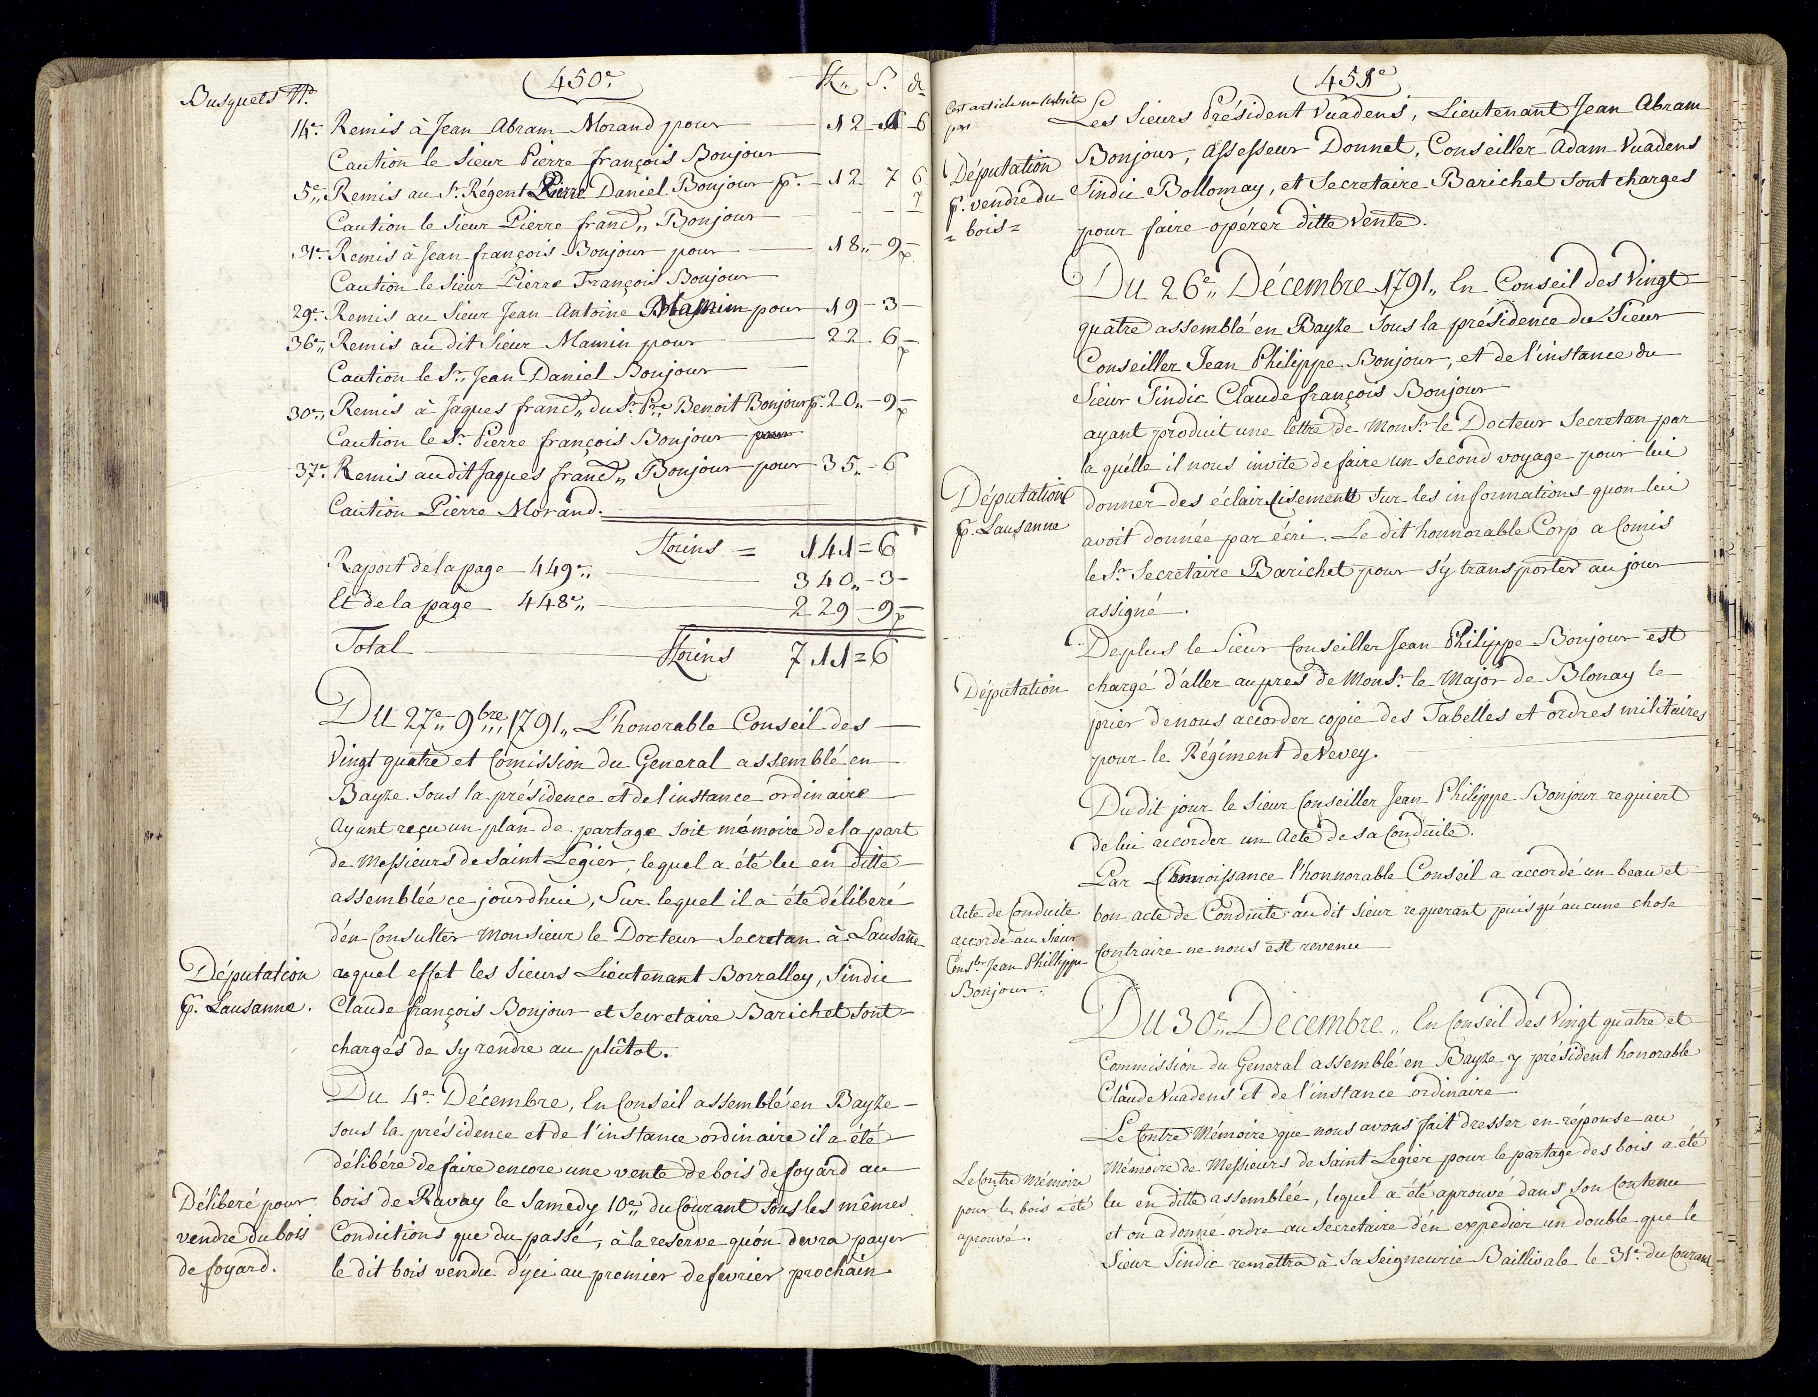 450.e
Busquets N.o fl.,, S. d.
14.e Remis à Jean Abram Morand pour 12 - 1 - 6
Caution le Sieur Pierre françois Bonjour
5.e,, Remis au Sr. Régent Pierre Daniel Bonjour p.r 12 7 6
Caution le Sieur Pierre franc.s,, Bonjour
31.e Remis à Jean françois Bonjour pour 18,, - 9 -
Caution le Sieur Pierre François Bonjour
29.e Remis au Sieur Jean Antoine Mamin pour 19 - 3 -
36.e,, Remis au dit Sieur Mamin pour 22 - 6 -
Caution le Sr. Jean Daniel Bonjour
30.e,, Remis à Jaques franc.s,, du Sr. P.re Benoit Bonjour p.r 20,, - 9 -
Caution le Sr. Pierre françois Bonjour pour
37.e Remis audit Jaques franc.s,, Bonjour pour 35,, - 6
Caution Pierre Morand.
florins = 141 = 6
Raport de la page 449.e,, 340,, - 3 -
Et de la page 448.e,, 229 - 9 -
Total florins 711 = 6
Du 27.e,, 9.bre,, 1791,, L'honorable Conseil des
Vingt quatre et Comission du General assemblé en
Bayze sous la présidence et de l'instance ordinaire
Ayant reçu un plan de partage soit mémoire de la part
de Messieurs de Saint Legier, lequel a été lu en ditte
assemblée ce jourdhui, Sur lequel il a été déliberé
d'en Consulter Monsieur le Docteur Secretan à Lausane
Députation aequel effet les Sieurs Lieutenant Borralley, Sindic
p.r Lausanne. Claude françois Bonjour et Secretaire Barichet sont
chargés de sy rendre au plûtot.
Du 4.e Décembre, En Conseil assemblé en Bayze
sous la présidence et de l'instance ordinaire il a été
délibére de faire encore une vente de bois de foyard au
Déliberé pour bois de Ravay le Samedy 10.e,, du Courant sous les mêmes
vendre du bois Conditions que du passé, à la reserve qu'on devra payer
de foyard. le dit bois vendu d'yci au premier de fevrier prochain
451.e
Cet article na subsité
pas
Les Sieurs Président Vuadens, Lieutenant Jean Abram
Députation Bonjour, Assesseur Donnet, Conseiller Adam Vuadens
p.r vendre du Sindic Bollomay, et Secretaire Barichet sont charges
= bois = pour faire opérer ditte Vente.
Du 26.e,, Décembre 1791,, En Conseil des Vingt
quatre assemblé en Bayze sous la présidence du Sieur
Conseiller Jean Philippe Bonjour, et de l'instance du
Sieur Sindic Claude françois Bonjour
ayant produit une lettre de Mons.r le Docteur Secretan par
la quélle il nous invite de faire un second voyage pour lui
Députation donner des éclaircisements sur les informations quon lui
p.r Lausanne avoit donnée par écri. Le dit honnorable Corp a Comis
le Sr. Secretaire Barichet pour s'y transporter au jour
assigné.
De plus le Sieur Conseiller Jean Philippe Bonjour est
Députation chargé d'aller aupres de Mons.r le Major de Blonay le
prier de nous accorder copie des Tabelles et ordres militaires
pour le Régiment de Vevey.
Dudit jour le Sieur Conseiller Jean Philippe Bonjour requiert
de lui accorder un Acte de sa Conduite.
Par Connoissance l'honnorable Conseil a accordé un beau et
Acte de Conduite bon acte de Conduite audit Sieur requerant puis qu'aucune chose
accordé au Sieur contraire ne nous est revenu
Cons.ler Jean Phillippe
Bonjour.
Du 30.e,, Décembre,, En Conseil des Vingt quatre et
Commission du General assemblé en Bayze y président honorable
Claude Vuadens et de l'instance ordinaire
Le Contre Mémoire que nous avons fait dresser en réponse au
Mémoire de Messieurs de Saint Legier pour le partage des bois a été
Le Contre Mémoire lu en ditte assemblée, lequel a été aprouvé dans son Contenu
pour les bois a été et on a donné ordre au Secretaire d'en expedier un double que le
aprouvé. Sieur Sindic remettra à Sa Seigneurie Baillivale le 31.e du Courant